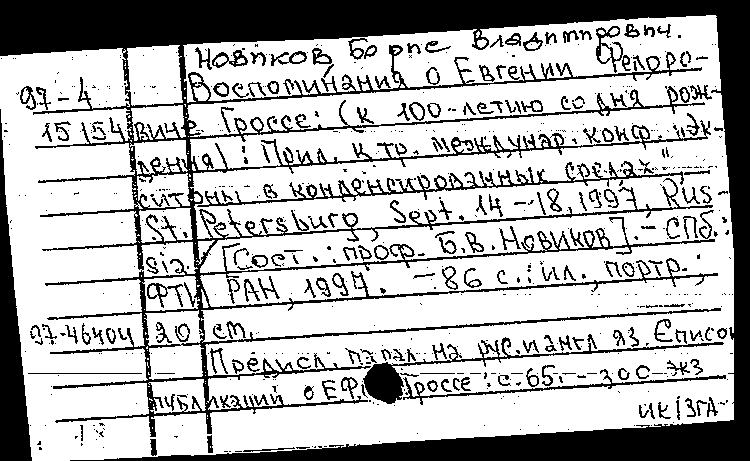 Новиков, Борис Владимирович.
97-4 Воспоминания о Евгении Федоро-
15154 виче Гроссе: (К 100-летию со дня рож-
дения): Прил. к тр. междунар. конф. "Эк-
ситоны в конденсированных средах",
St. Petersburg, Sept. 14-18, 1997, Rus-
sia / [Сост.: проф. Б.В. Новиков]. - СПб.:
ФТИ РАН, 1997. - 86 с.: ил., портр.;
97-46404 20 см.
Предисл. парал. на рус. и англ яз. Список
публикаций о Е.Ф. Гроссе: с. 65. - 300 экз
ИК/ЗГА